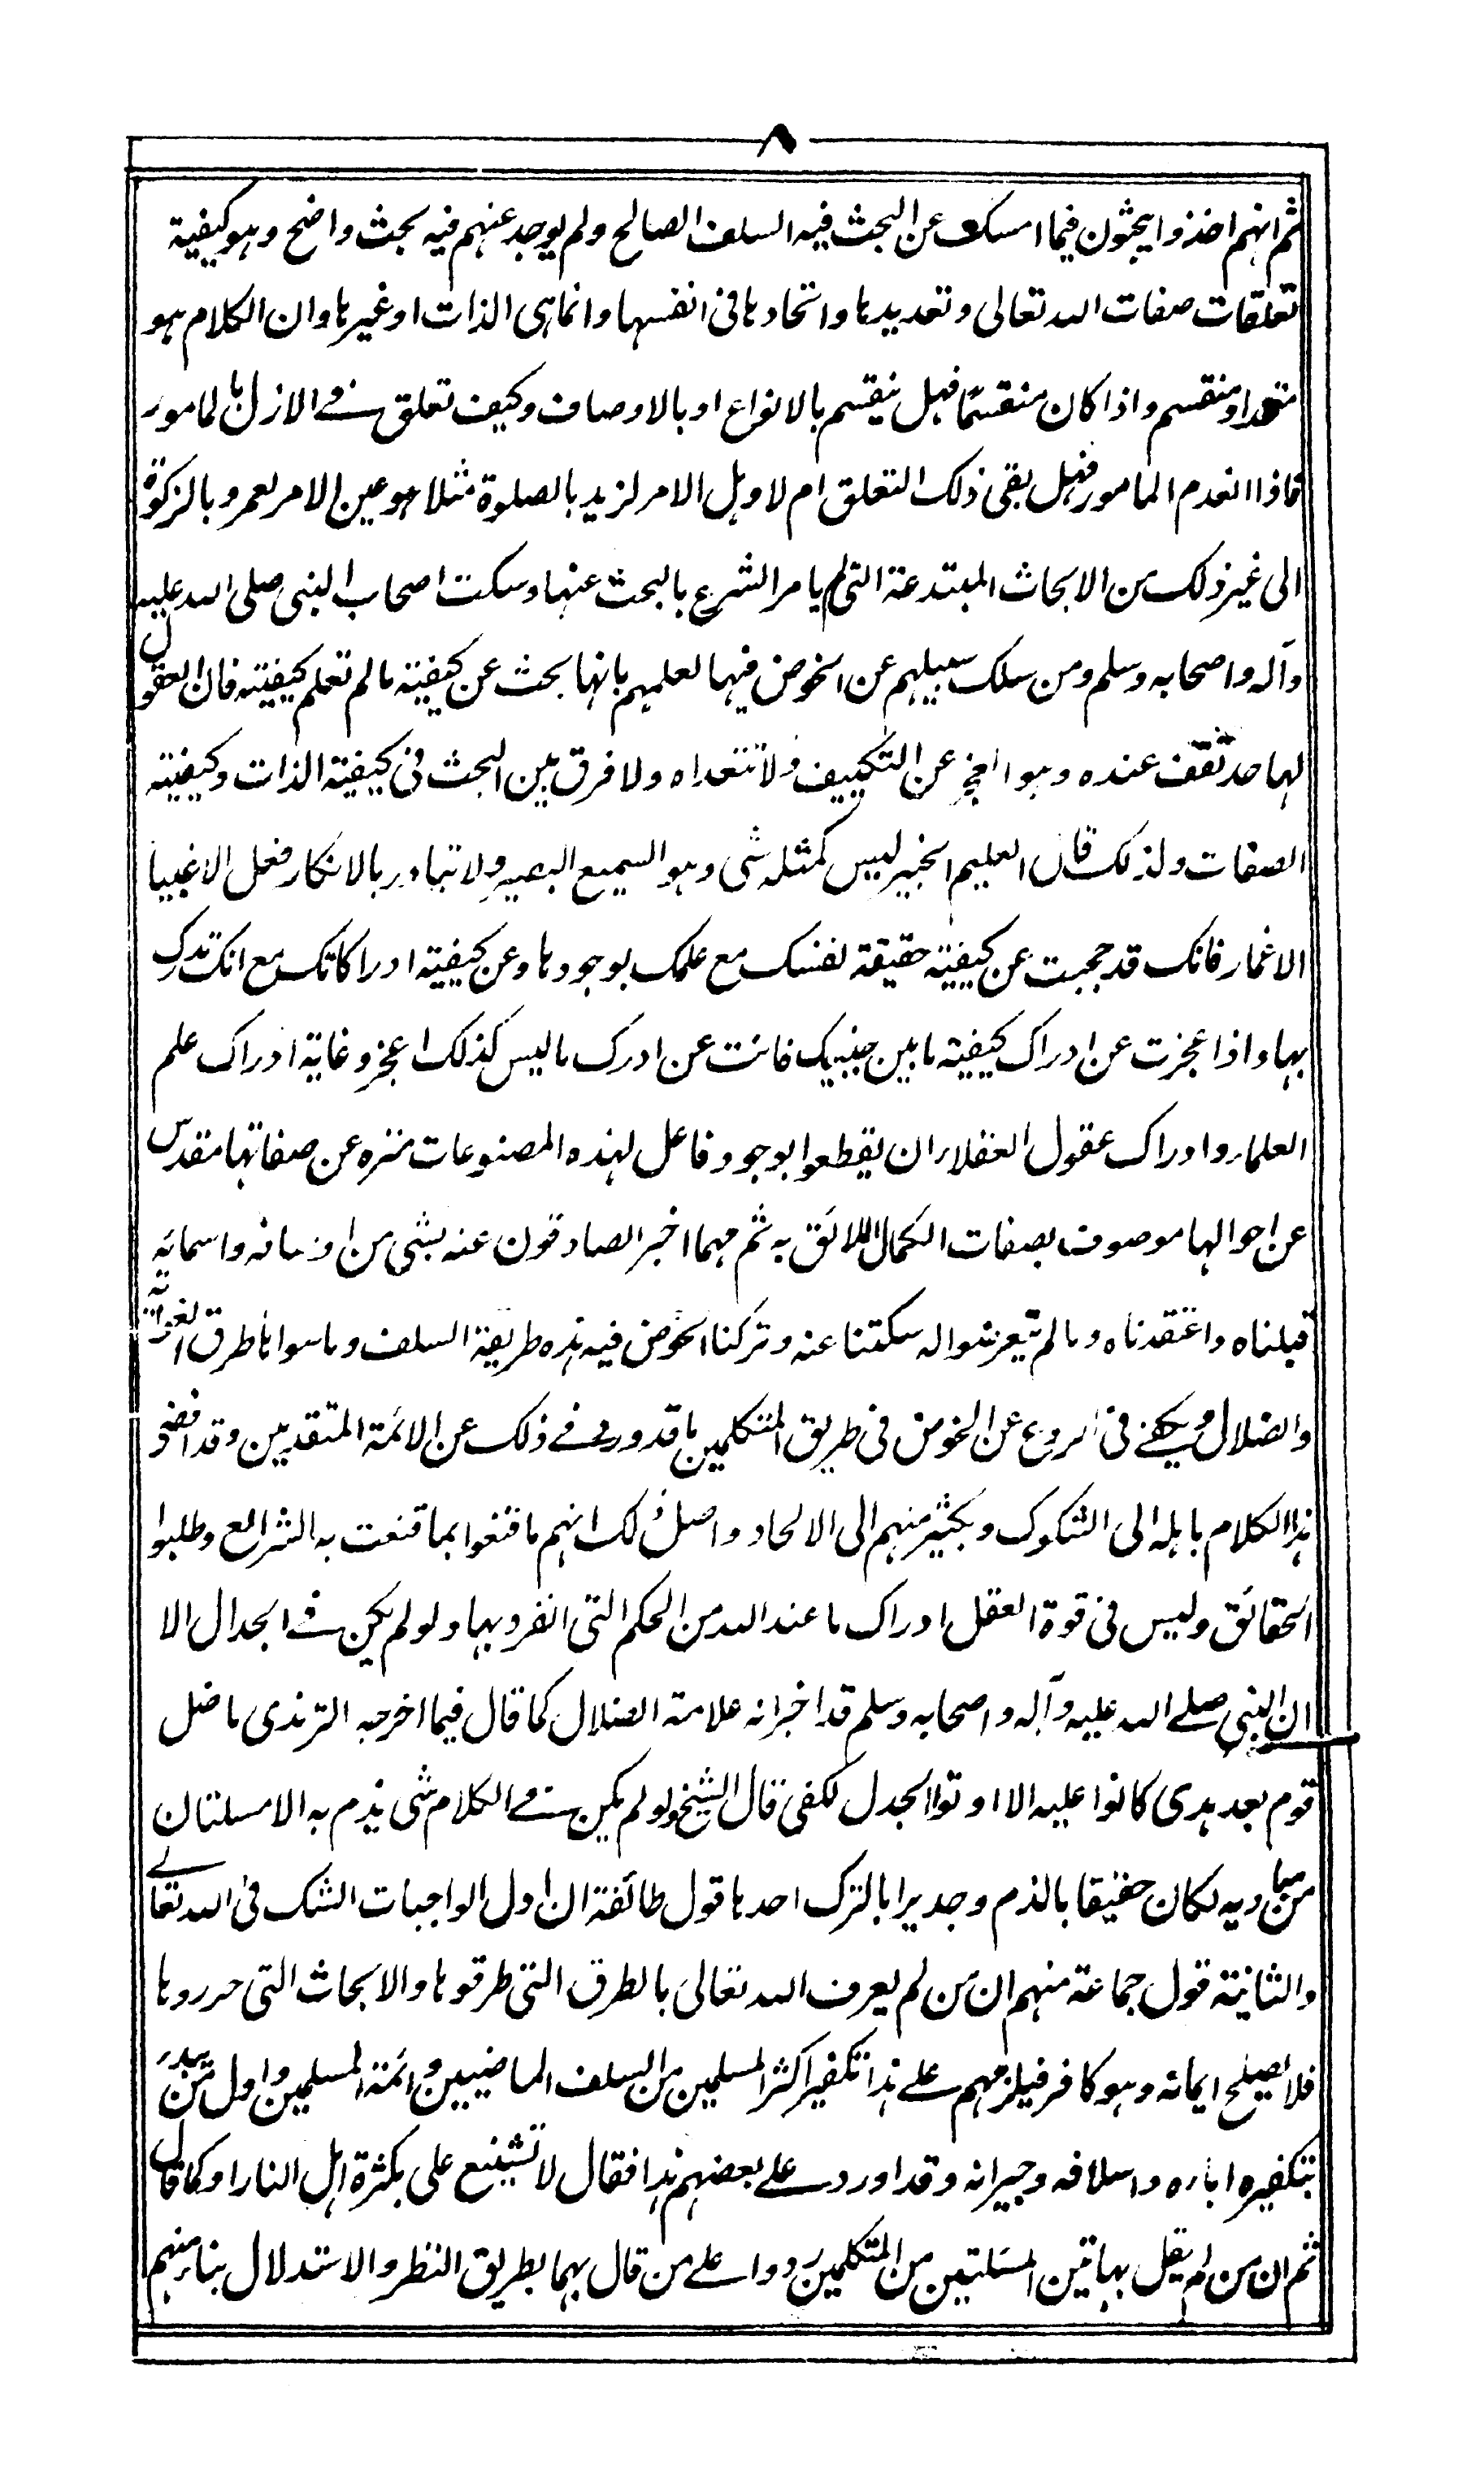 ٨
ثم انهم اخذوا يبحثون فيما امسك عن البحث فيه السلف الصالح ولم يوجد عنهم فيه بحث واضح وهو كيفية
تعلقات صفات الله تعالى وتعديدها واتحادها فى انفسها وانها هى الذات او غيرها وان الكلام هو
متحد او منقسم واذا كان منقسمًا فهل ينقسم بالانواع او بالاوصاف وكيف تعلق فى الازل بالمامور
فاذا انعدم المامور فهل بقى ذلك التعلق ام لا وهل الامر لزيد بالصلوة مثلا هو عين الامر لعمر وبالزكوة
الى غير ذلك من الابحاث المبتدعة التى لم يامر الشرع بالبحث عنها وسكت اصحاب النبى صلى الله عليه
وآله واصحابه وسلم ومن سلك سبيلهم عن الخوض فيها لعلمهم بانها بحث عن كيفية ما لم تعلم كيفيته فان العقول
لها حد تقف عنده وهو العجز عن التكييف ولا تتعداه ولا فرق بين البحث فى كيفية الذات وكيفية
الصفات ولذلك قال العليم الخبير ليس كمثله شى وهو السميع البصير ولا تبادر بالانكار فعل الاغبياء
الاغمار فانك قد حجبت عن كيفية حقيقة نفسك مع علمك بوجودها وعن كيفية ادراكاتك مع انك تدرك
بها واذا عجزت عن ادراك كيفية ما بين جنبيك فانت عن ادرك ما ليس كذلك اعجز وغاية ادراك علم
العلماء وادراك عقول العقلاء ان يقطعوا بوجود فاعل لهذه المصنوعات منزه عن صفاتها مقدس
عن احوالها موصوف بصفات الكمال اللائق به ثم مهما اخبر الصادقون عنه بشى من اوصافه واسمائه
قبلناه واعتقدناه وما لم يتعرضوا له سكتنا عنه وتركنا الخوض فيه هذه طريقة السلف وما سواها طرق الغواية
والضلال ويكفى فى الردع عن الخوض فى طريق المتكلمين ما قد ورد فى ذلك عن الائمة المتقدمين وقد افضى
هذا الكلام باهله الى الشكوك وبكثير منهم الى الالحاد واصل ذلك انهم ما قنعوا بما قنعت به الشرائع وطلبوا
الحقائق وليس فى قوة العقل ادراك ما عند الله من الحكم التى انفرد بها ولو لم يكن فى الجدال الا
ان النبى صلى الله عليه وآله واصحابه وسلم قد اخبر انه علامة الضلال كما قال فيما اخرجه الترمذى ما ضل
قوم بعد هدى كانوا عليه الا اوتوا الجدل لكفى قال الشيخ ولو لم يكن فى الكلام شى يذم به الا مسئلتان
من مباديه لكان حقيقا بالذم وجديرا بالترك احدها قول طائفة ان اول الواجبات الشك فى الله تعالى
والثانية قول جماعة منهم ان من لم يعرف الله تعالى بالطرق التى طرقوها والابحاث التى حرروها
فلا يصلح ايمانه وهو كافر فيلزمهم على هذا تكفير اكثر المسلمين من السلف الماضيين وائمة المسلمين واول من يبدء
بتكفيره اباءه واسلافه وجيرانه وقد اورد على بعضهم هذا فقال لا تشنيع على بكثرة اهل النار او كما قال
ثم ان من لم يقل بهاتين المسئلتين من المتكلمين ردوا على من قال بهما بطريق النظر والاستدلال بناء منهم